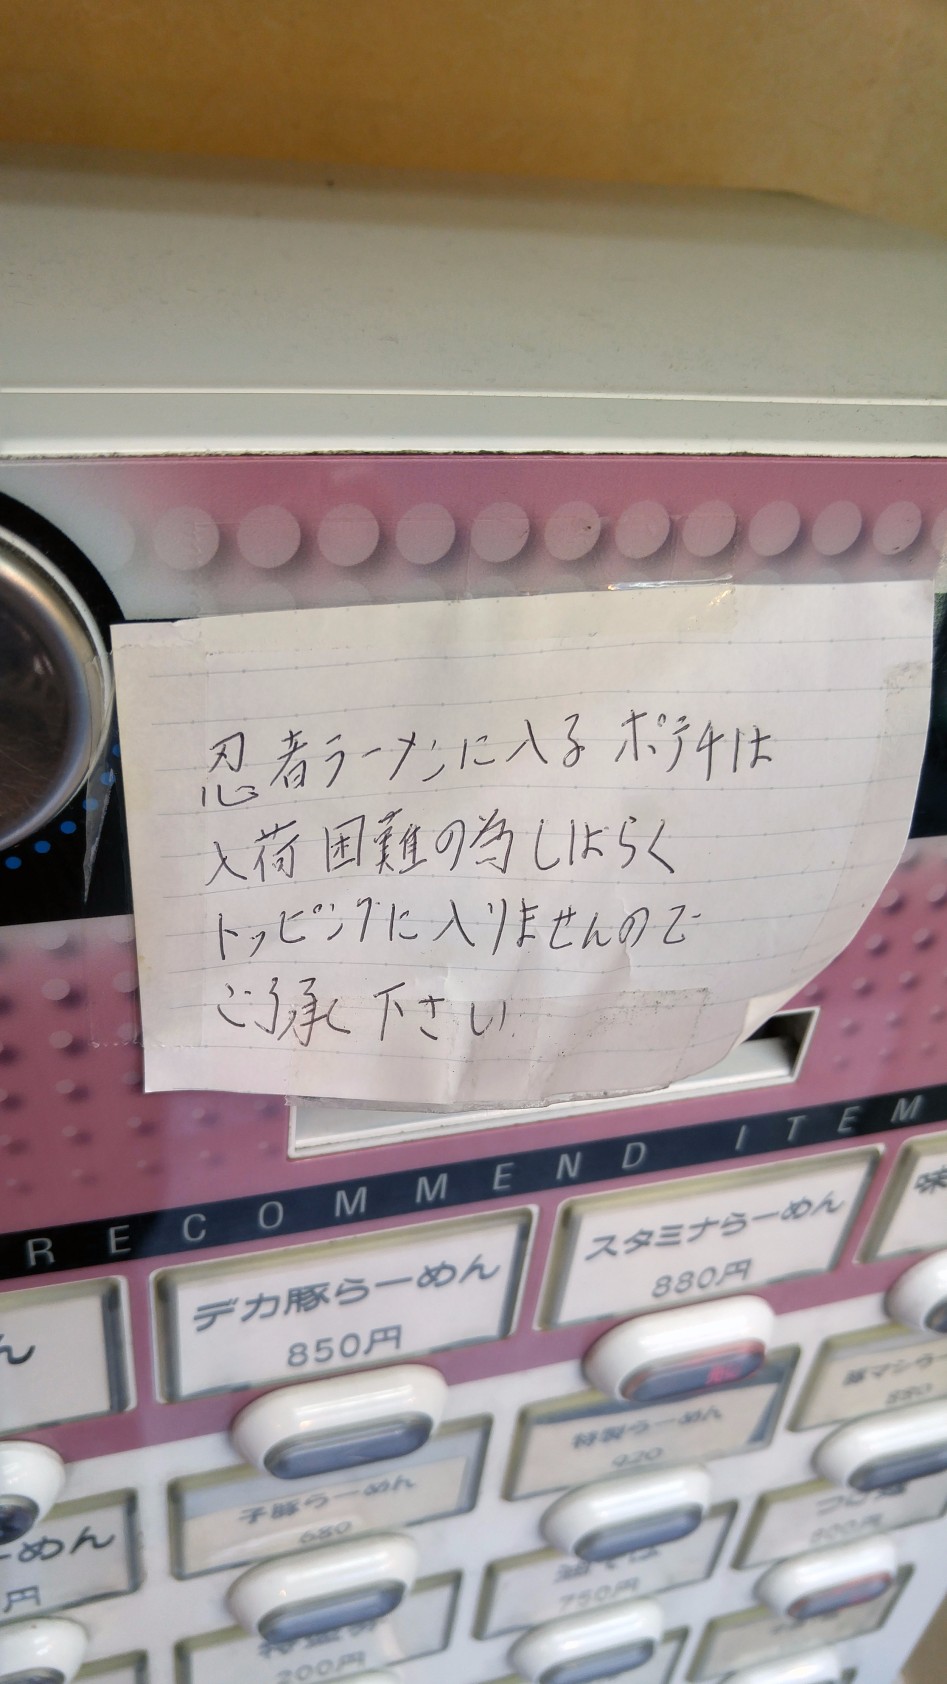 忍者ラーメンに入る ポテチは
入荷困難の為しばらく
トッピングに入りませんので
ご了承下さい
RECOMMEND ITEM
デカ豚らーめん
850円
スタミナらーめん
880円
味
ん
子豚らーめん
680
特製らーめん
920
豚マシラー
880
ーめん
円
油そば
750円
200円